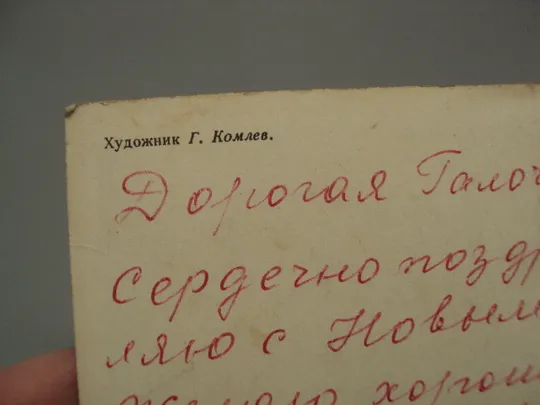 Художник Г. Комлев.
Дорогая Галоч
Сердечно поздр
ляю с Новым
желаю хорош